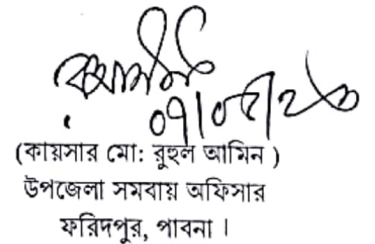 ০৭/০৫/২৩
(কায়সার মো: রুহুল আমিন )
উপজেলা সমবায় অফিসার
ফরিদপুর, পাবনা ।